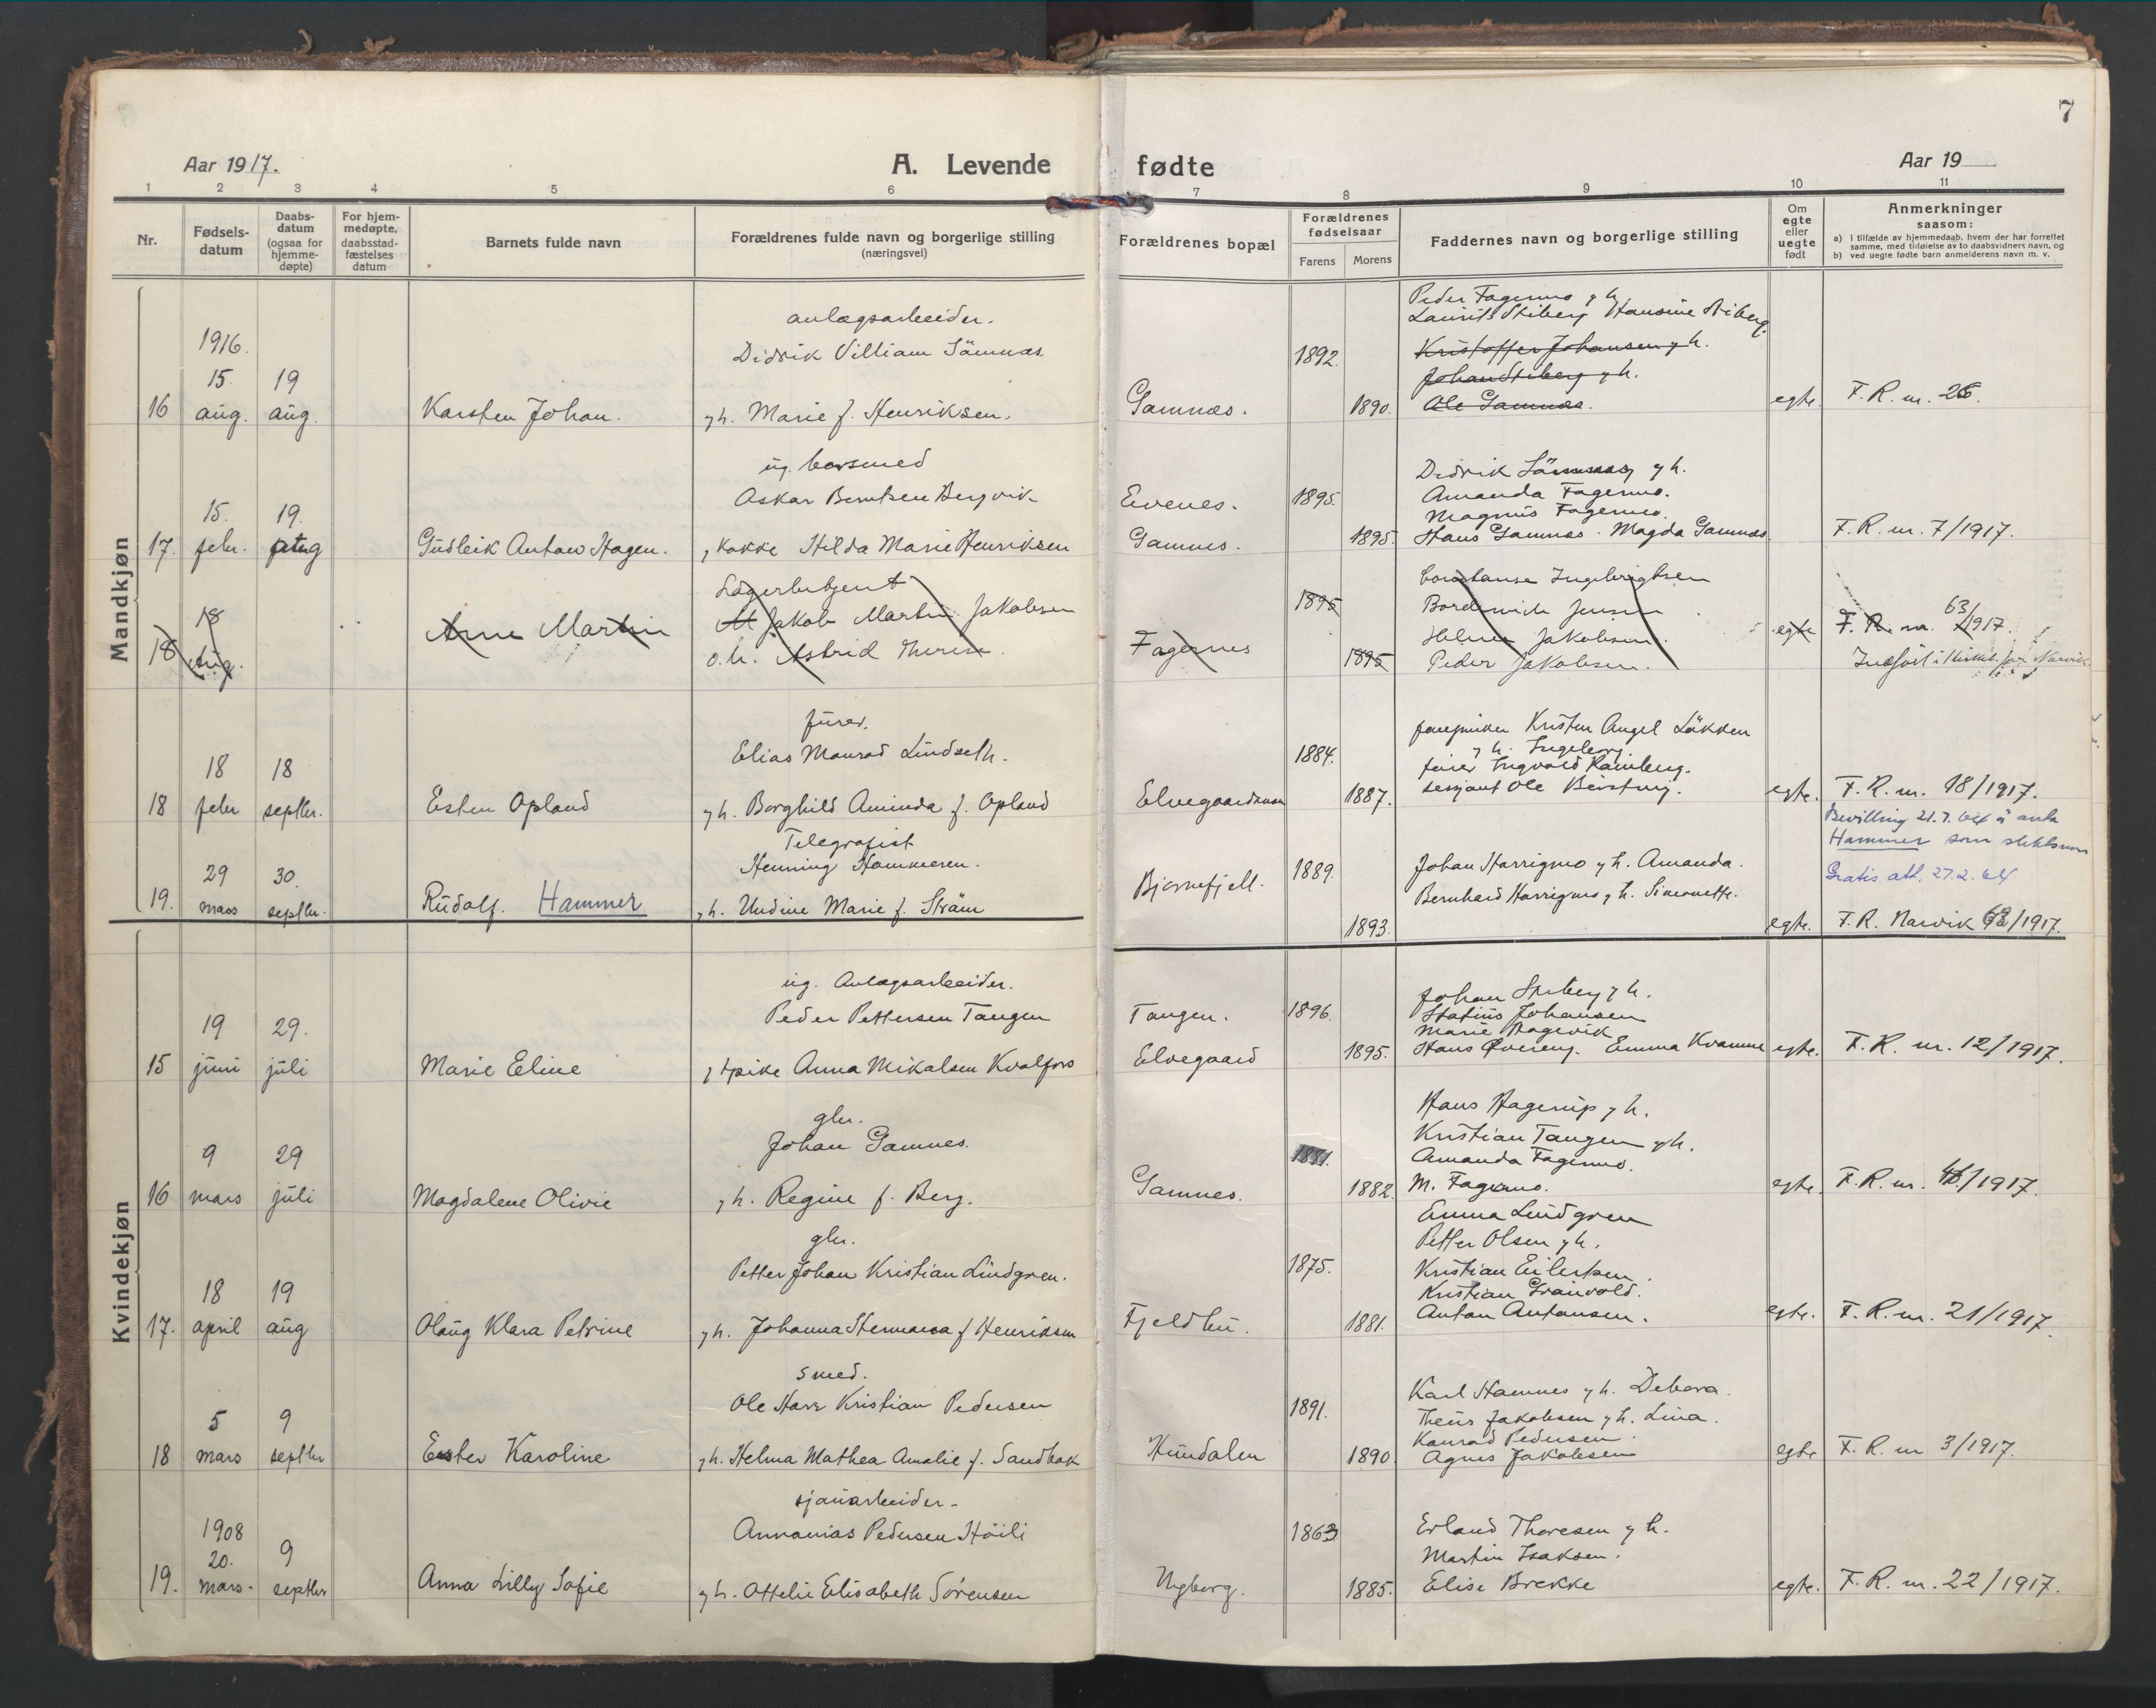 7
Aar 1917.
A. Levende fødte
Aar 19
1 2 3 4 5 6 7 8 9 10 11
Nr.
Fødsels-
datum
Daabs-
datum
(ogsaa for
hjemme-
døpte)
For hjem-
medøpte,
daabsstad-
fæstelses
datum
Barnets fulde navn
Forældrenes fulde navn og borgerlige stilling
(næringsvei)
Forældrenes bopæl
Forældrenes
fødselsaar
Farens
Morens
Faddernes navn og borgerlige stilling
Om
egte
eller
uegte
født
Anmerkninger
saasom:
a) i tilfælde av hjemmedaab, hvem der har forrettet
samme, med tilføielse av to daabsvidners navn, og
b) ved uegte fødte barn anmelderens navn m. v.
Mandkjøn
16
1916.
15.
aug.
19
aug.
Karsten Johan.
anlægsarbeider.
Didrik Villiam Sämnæs
y h. Marie f. Henriksen.
Gamnæs.
1892.
1890.
Peder Fagermo y h.
Laurits Stiberg Hansine Stiberg.
Kristoffer Johansen y h.
Johan Stiberg y h.
Ole Gamnæs.
egte.
F. R. nr. 26.
17.
15.
febr.
19.
aug
Gudleik Anton Hagen.
ug.
Askar Berntsen Bergvik
, kokke Hilda Marie Henriksen
Evenes.
Gamnes.
1895.
1895.
Didrik y h.
Amanda Fagermo.
Magnus Fagermo.
Hans Gamnæs. Magda Gamnæs
F. R. nr. 7/1917.
18
18
Aug.
Arne Martin
Lagerbetjent
Jakob Martin Jakobsen
o. h. Astrid Therese
Fagernes
1895
1895
Constanse Ingebrigtsen
Jensen
Helmer Jakobsen.
Peder Jakobsen.
egte
F. R. nr. 63/1917.
Indført i Kirkeb. for Narvik.
18
18
febr
18
septbr.
Esten Opland
furer.
Elias Monrad Lindseth.
y h. Borghild Aminda f. Opland
Elvegaardsmoen
1884.
1887.
fanejunker Kristen Angel Läkken
y h. Ingeborg.
furer Ingvald Ramberg.
sersjant Ole
egte.
F. R. nr. 18/1917.
19.
29
mars
30.
septbr.
Rudolf. Hammer
Telegrafist
Henning Hammeren.
y h. Undine Marie f. Sträm
Bjørnefjell.
1889.
1893.
Johan Harrigmo y h. Amanda.
Bernhard Harrigmo y h. Simonette.
egte.
Bevilling 21.7.64 å anta
Hammer som slektsnavn
Gratis att. 27.2.64
F. R. Narvik 63/1917.
Kvindekjøn
15
19
juni
29.
juli
Marie Eline
ug. Anlægsarbeider.
Peder Pettersen Tangen
y pike Anna Mikalsen Kvalfors
Tangen.
Elvegaard
1896.
1895.
Johan Stiberg y h.
Statius Johansen
Marie Hagevik
Hans Øvereng. Emma Kvamme
egte.
F. R. nr. 12/1917.
16
9
mars
29
juli
Magdalene Olivie
gbr.
Johan Gamnes.
y h. Regine f. Berg.
Gamnes.
1881.
1882.
Hans Hagerup y h.
Kristian Tangen y h.
Amanda Fagermo.
M. Fagermo.
egte.
F. R. nr. /1917.
17.
18
april
19
aug
Olaug Klara Petrine
gbr.
Petter Johan Kristian Lindgren.
y h. Johanna f. Henriksen
Fjeldbu.
1875.
1881.
Emma Lindgren
Petter Olsen y h.
Kristian Eilertsen.
Kristian Granvold.
Anton Antonsen.
egte.
F. R. nr. 21/1917.
18
5
mars
9
septbr
Ester Karoline
smed.
Ole Harr Kristian Pedersen
y h. Helma Mathea Amalie f. Sandbak
Hundalen
1891.
1890.
Karl Hamnes y h. Debora.
Theis Jakobsen y h. Lina.
Konrad Pedersen.
Agnes Jakobsen
egte
F. R. nr 3/1917.
19.
1908
20.
mars.
9
septbr
Anna Lilly Sofie
sjauarbeider.
Annanias Pedersen Höili
y h. Ottelie Elisabeth Sörensen
Nyborg.
1863
1885.
Erland Thoresen y h.
Martin Isaksen.
Elise Brekke
egte.
F. R. nr. 22/1917.